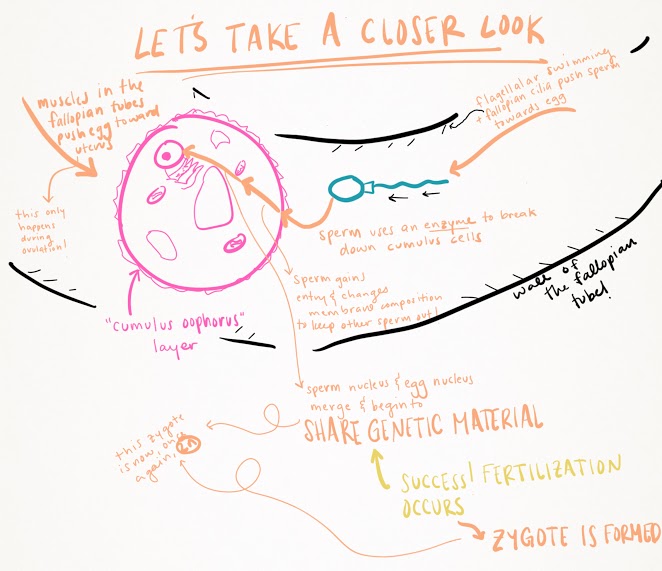 LET'S TAKE A CLOSER LOOK
muscles in the
fallopian tubes
push egg toward
uterus
flagellar swimming
+ fallopian cilia push sperm
towards egg
this only
happens
during
ovulation!
sperm uses an enzyme to break
down cumulus cells
sperm gains
entry & changes
membrane composition
to keep other sperm out!
wall of
the fallopian
tube!
"cumulus oophorus"
layer
sperm nucleus & egg nucleus
merge & begin to
SHARE GENETIC MATERIAL
this zygote
is now, once
again, 2n
SUCCESS! FERTILIZATION
OCCURS
ZYGOTE IS FORMED